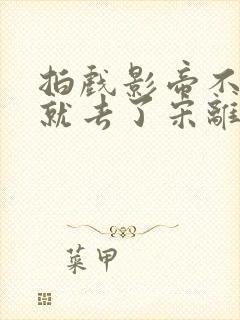 拍戲影帝不
就去了宋離
菜甲